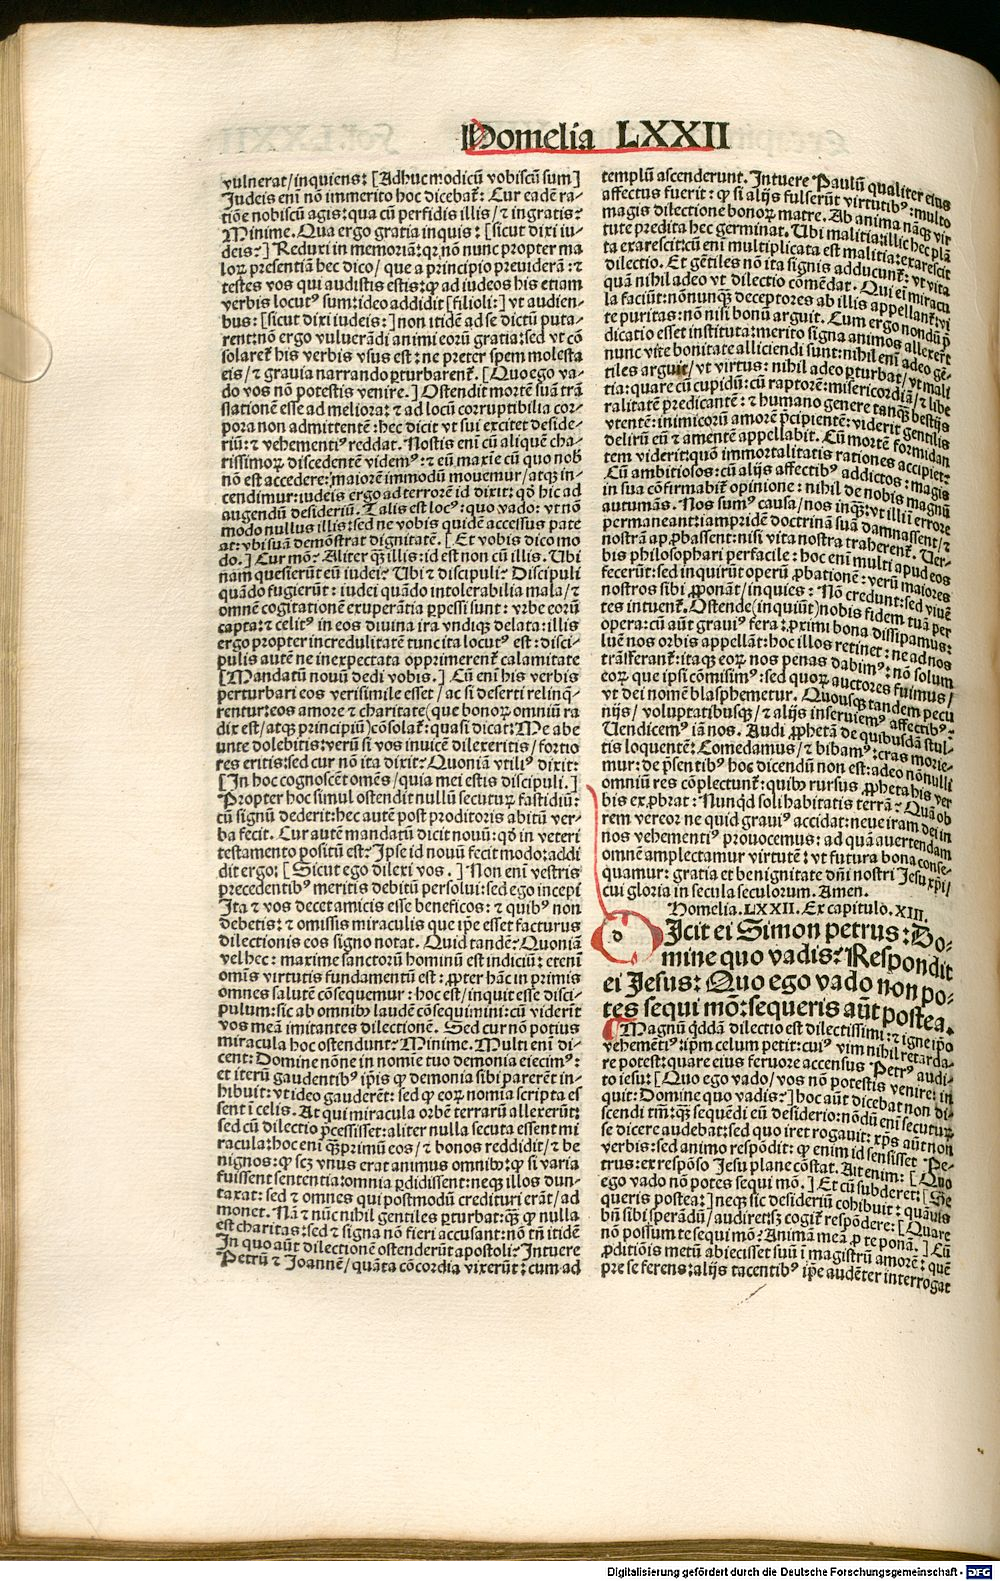 Homelia LXXII
vulnerat/inquiens: [Adhuc modicū vobiscū sum]
Iudeis enī nō immerito hoc dicebat: Cur eadē ra-
tiōe nobiscū agis: qua cū perfidis illis/ ⁊ ingratis?
Minime. Qua ergo gratia inquis: [sicut dixi iu-
deis:] Reduxi in memoriā: qꝛ nō nunc propter ma
loꝝ presentiā hec dico/ que a principio previderā: ⁊
testes vos qui audistis estis: ꝙ ad iudeos his etiam
verbis locutꝰ sum: ideo addidit [filioli:] vt audien-
bus: [sicut dixi iudeis:] non itidē ad se dictū puta-
rent: nō ergo vulnerādi animi eorū gratia: sed vt cō
solaret̄ his verbis vsus est: ne preter spem molesta
eis/ ⁊ gravia narrando ꝑturbarent̄. [Quo ego va-
do vos nō potestis venire.] Ostendit mortē suā trā
slationē esse ad meliora: ⁊ ad locū corruptibilia cor-
pora non admittentē: hec dicit vt sui excitet deside-
riū: ⁊ vehementiꝰ reddat. Nostis enī cū aliquē cha-
rissimoꝝ discedentē videmꝰ: ⁊ eū maxīe cū quo nob̄
nō est accedere: maiorē immodū mouemur/ atqꝫ in-
cendimur: iudeis ergo ad terrorē id dixit: qd̄ hic ad
augendū desideriū. Talis est locꝰ: quo vado: vt nō
modo nullus illis: sed ne vobis quidē accessus pate
at: vbi suā demōstrat dignitatē. [Et vobis dico mo
do.] Cur mō? Aliter qꝫ illis: id est non cū illis. Ubi
nam quesierūt eū iudei? Ubi ⁊ discipuli? Discipuli
quādo fugierūt: iudei quādo intolerabilia mala/ ⁊
omnē cogitationē exuperātia ꝑpessi sunt: vrbe eorū
capta: ⁊ celitꝰ in eos divina ira vndiqꝫ delata: illis
ergo propter incredulitatē tunc ita locutꝰ est: disci-
pulis autē ne inexpectata opprimerent̄ calamitate
[Mandatū nouū dedi vobis.] Cū enī his verbis
perturbari eos verisimile esset/ ac si deserti relinq̄-
rentur: eos amore ⁊ charitate (que bonoꝝ omniū ra
dix est/ atqꝫ principiū) cōsolat̄: quasi dicat: Me abe
unte dolebitis: verū si vos invicē dilexeritis/ fortio
res eritis: sed cur nō ita dixit? Quoniā vtiliꝰ dixit:
[In hoc cognoscēt omēs/ quia mei estis discipuli.]
Propter hoc simul ostendit nullū secutuꝝ fastidiū:
cū signū dederit: hec autē post proditoris abitū ver-
ba fecit. Cur autē mandatū dicit nouū: qd̄ in veteri
testamento positū est? Ipse id nouū fecit modo: addi
dit ergo: [Sicut ego dilexi vos.] Non enī vestris
precedentibꝰ meritis debitū persolui: sed ego incepi
Ita ⁊ vos decet amicis esse beneficos: ⁊ quibꝰ non
debetis: ⁊ omissis miraculis que ip̄e esset facturus
dilectionis eos signo notat. Quid tandē? Quoniā
vel hec: maxime sanctorū hominū est indiciū: etenī
omīs virtutis fundamentū est: ꝓpter hāc in primis
omnes salutē cōsequemur: hoc est/ inquit esse disci-
pulum: sic ab omnibꝫ laudē cōsequimini: cū viderit
vos meā imitantes dilectionē. Sed cur nō potius
miracula hoc ostendunt? Minime. Multi enī di-
cent: Domine nōne in nomīe tuo demonia eiecimꝰ:
et iterū gaudentibꝰ ip̄is ꝙ demonia sibi parerēt in-
hibuit: vt ideo gauderēt: sed ꝙ eoꝝ nomīa scripta es
sent ī celis. At qui miracula orbē terrarū allexerūt:
sed cū dilectio p̄cessisset: aliter nulla secuta essent mi
racula: hoc enī qꝫprimū eos/ ⁊ bonos reddidit/ ⁊ be
nignos: ꝙ scꝫ vnus erat animus omnibꝫ: ꝙ si varia
fuissent sententia: omnia ꝑdidissent: neqꝫ illos dun-
taxat: sed ⁊ omnes qui postmodū credituri erāt/ ad
monet. Nā ⁊ nūc nihil gentiles ꝑturbat: qꝫ ꝙ nulla
est charitas: sed ⁊ signa nō fieri accusant: nō tn̄ itidē
In quo aūt dilectionē ostenderūt apostoli? Intuere
Petrū ⁊ Joannē/ quāta cōcordia vixerūt: cum ad
templū ascenderunt. Intuere Paulū qualiter eius
affectus fuerit: ꝙ si alijs fulserūt virtutibꝰ: multo
magis dilectione bonoꝝ matre. Ab anima nāqꝫ vir
tute predita hec germinat. Ubi malitia: illic hec plā
ta exarescit: cū enī multiplicata est malitia: exarescit
dilectio. Et gētiles nō ita signis adducunt̄: vt vita
quā nihil adeo vt dilectio cōmēdat. Qui eī miracu
la faciūt: nōnunqꝫ deceptores ab illis appellant̄: vi
te puritas: nō nisi bonū arguit. Cum ergo nondū p̄
dicatio esset instituta: merito signa animos allexerūt
nunc vite bonitate alliciendi sunt: nihil enī adeo gē-
tiles arguit/ vt virtus: nihil adeo ꝑturbat/ vt mali
tia: quare cū cupidū: cū raptorē: misericordiā/ ⁊ libe
ralitatē predicantē: ⁊ humano genere tanqꝫ bestijs
vtentē: inimicorū amorē p̄cipientē: viderit gentilis
delirū eū ⁊ amentē appellabit. Cū mortē formidan
tem viderit: quō immortalitatis rationes accipiet?
Cū ambitiosos: cū alijs affectibꝰ addictos: magis
in sua cōfirmabit̄ opinione: nihil de nobis magnū
autumās. Nos sumꝰ causa/ nos inqꝫ: vt illi ī errore
permaneant: iampridē doctrinā suā damnassent/ ⁊
nostrā apꝓbassent: nisi vita nostra traherent̄. Ver-
bis philosophari perfacile: hoc enī multi apud eos
fecerūt: sed inquirūt operū ꝓbationē: verū maiores
nostros sibi ꝓponāt/ inquies: Nō credunt: sed viuē
tes intuent̄. Ostende (inquiūt) nobis fidem tuā per
opera: cū aūt graviꝰ fera: ꝓximi bona dissipamus:
luē nos orbis appellāt: hoc illos retinet: ne ad nos
trāsferant̄: itaqꝫ eoꝝ nos penas dabimꝰ: nō solum
eoꝝ que ipsi cōmisimꝰ: sed quoꝝ auctores fuimus/
vt dei nomē blasphemetur. Quousqꝫ tandem pecu
nijs/ voluptatibusqꝫ/ ⁊ alijs inserviemꝰ affectibꝰ?
Uendicemꝰ iā nos. Audi ꝓphetā de quibusdā stul-
tis loquentē: Comedamus/ ⁊ bibamꝰ: cras morie-
mur: de p̄sentibꝰ hoc dicendū non est: adeo nōnulli
omniū res cōplectunt̄: quibꝫ rursus ꝓpheta his ver
bis exꝓbrat: Nunqd soli habitatis terrā? Quā ob
rem vereor ne quid graviꝰ accidat: neve iram dei in
nos vehementiꝰ provocemus: ad quā avertendam
omnē amplectamur virtutē: vt futura bona conse-
quamur: gratia et benignitate dn̄i nostri Jesu xp̄i/
cui gloria in secula seculorum. Amen.
Homelia.LXXII. Ex capitulo.XIII.
d Icit ei Simon petrus: Do-
mine quo vadis? Respondit
ei Jesus: Quo ego vado non po-
tes sequi mō: sequeris aūt postea.
¶Magnū qddā dilectio est dilectissimi: ⁊ igne ip̄o
vehemētiꝰ: ip̄m celum petit: cuiꝰ vim nihil retarda-
re potest: quare eius fervore accensus Petrꝰ audi-
to iesu: [Quo ego vado/ vos nō potestis venire: in
quit: Domine quo vadis?] hoc aūt dicebat non di-
scendi tm̄: qꝫ sequēdi eū desiderio: nōdū enī secutuꝝ
se dicere audebat: sed quo iret rogauit: xp̄s aūt non
verbis: sed animo respōdit: ꝙ enim id sensisset Pe-
trus: ex respōso Jesu plane cōstat. Ait enim: [Quo
ego vado nō potes sequi mō.] Et cū subderet: [Se
queris postea:] neqꝫ sic desideriū cohibuit: quāvis
bn̄ sibi sperādū/ audiret: sꝫ cogit̄ respōdere: [Quare
nō possum te sequi mō? Animā meā ꝓ te ponā.] Cū
ꝓditiōis metū abiecisset suū ī magistrū amorē: quē
pre se ferens: alijs tacentibꝰ ip̄e audēter interrogat
Digitalisierung gefördert durch die Deutsche Forschungsgemeinschaft - DFG